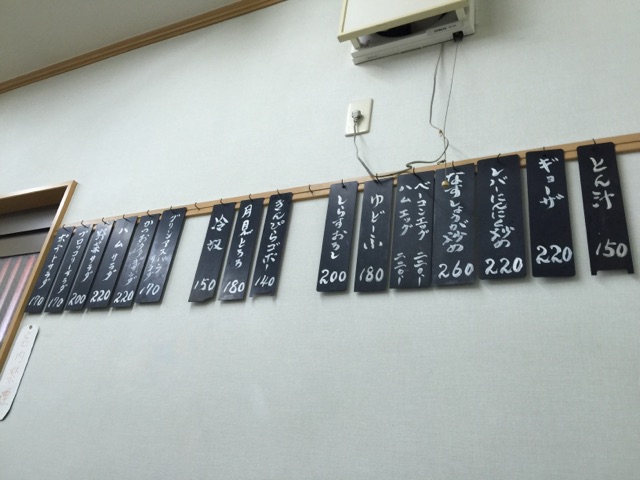 とん汁 150
ギョーザ 220
レバにんにく炒め 220
なすしょうが炒め 260
ベーコンエッグ 二二〇ー
ハムエッグ 二二〇ー
ゆどーふ 180
しらすおろし 200
きんぴらゴボー 140
月見とろろ 180
冷奴 150
170
ハムサラダ 220
野菜サラダ 220
ブロッコリーサラダ 200
170
ポテトサラダ 170